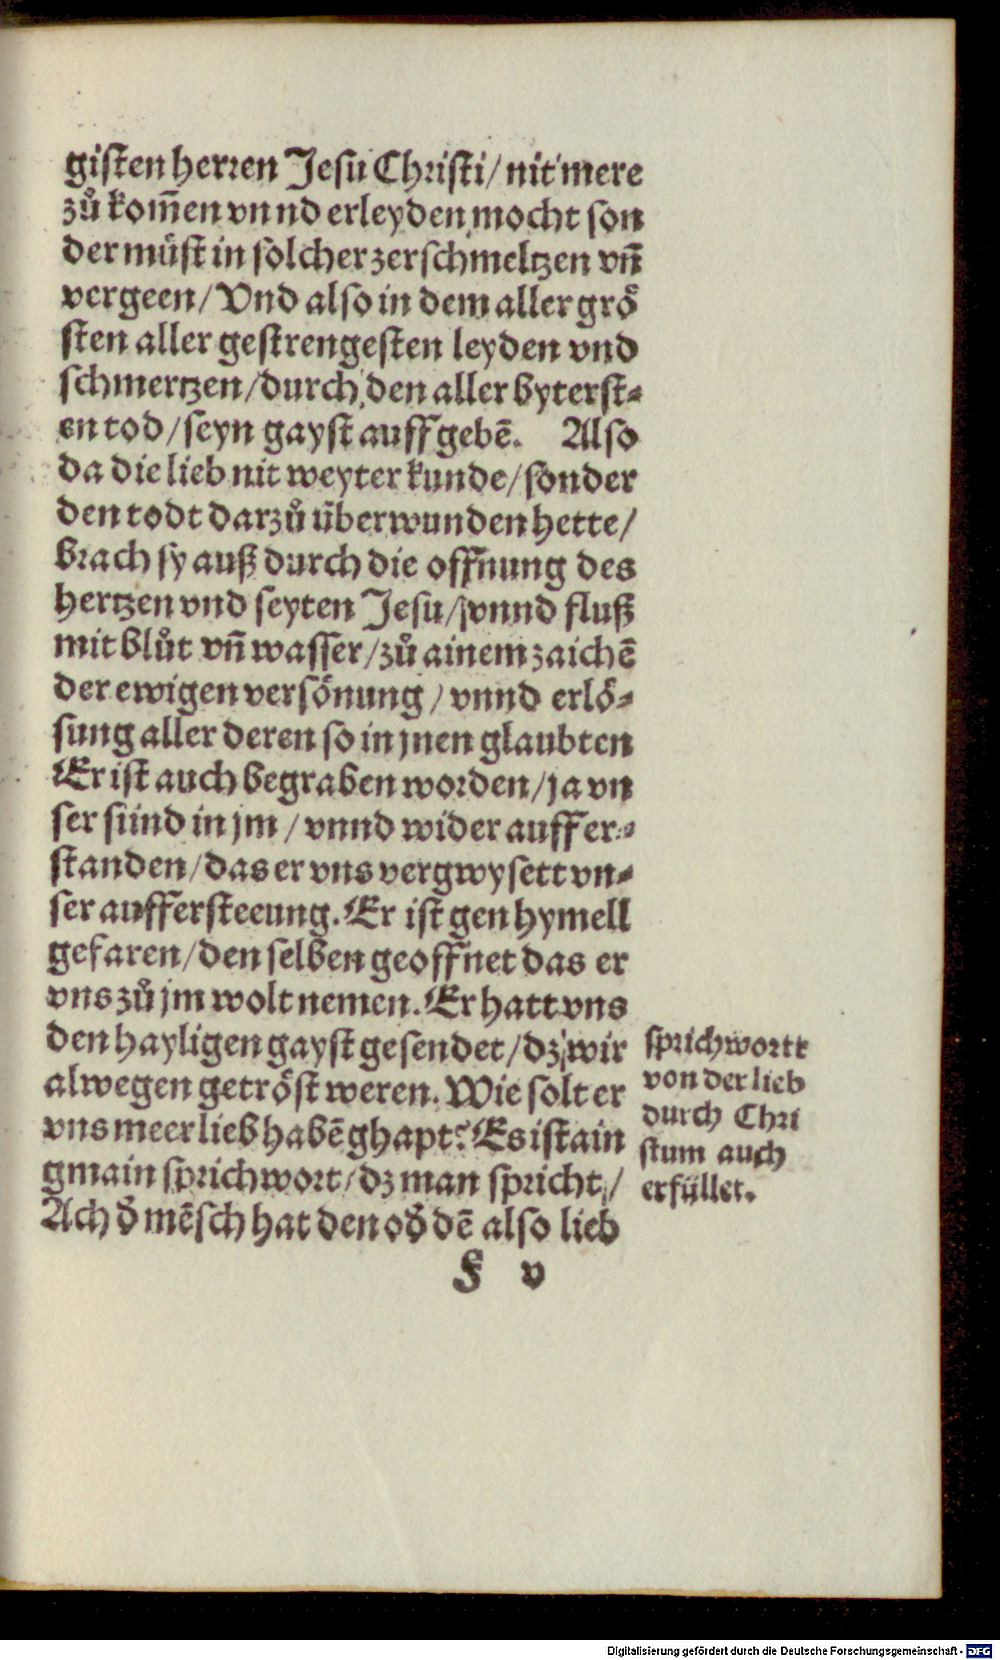 gisten herren Jesu Christi/ nit mere
zů kom̄en vnnd erleyden mocht son
der müst in solcher zerschmeltzen vn̄
vergeen/ Vnd also in dem aller grö
sten aller gestrengesten leyden vnd
schmertzen/ durch den aller byterst⸗
en tod/ seyn gayst auff gebē. Also
da die lieb nit weyter kunde/ sonder
den todt darzů überwunden hette/
brach sy auß durch die offnung des
hertzen vnd seyten Jesu/ vnnd fluß
mit blůt vn̄ wasser/ zů ainem zaichē
der ewigen versönung/ vnnd erlö⸗
sung aller deren so in jnen glaubten
Er ist auch begraben worden/ ja vn
ser sünd in jm/ vnnd wider auff er⸗
standen/ das er vns vergwysett vn⸗
ser auffersteeung. Er ist gen hymell
gefaren/ den selben geoffnet das er
vns zů jm wolt nemen. Er hatt vns
den hayligen gayst gesendet/ dz wir
alwegen getröst weren. Wie solt er
vns meer lieb habē ghapt? Es ist ain
gmain sprichwort/ dz man spricht/
Ach d̄ mēsch hat den od̄ dē also lieb
F v
sprichwortt
von der lieb
durch Chri
stum auch
erfüllet.
Digitalisierung gefördert durch die Deutsche Forschungsgemeinschaft - DFG